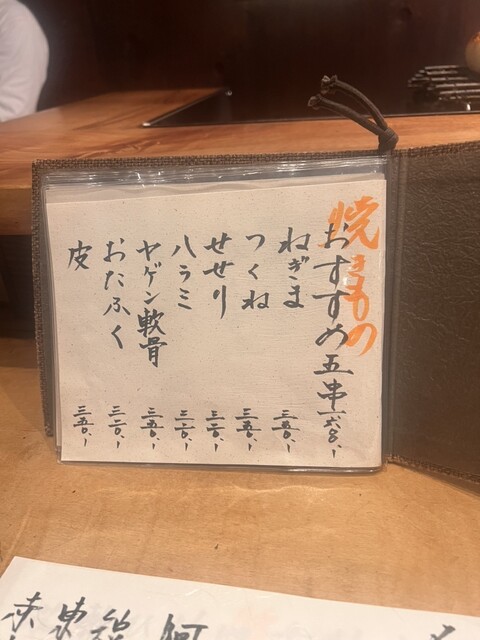 焼きもの
おすすめ五串 一六八〇、-
ねぎま 三五〇、-
つくね 三五〇、-
せせり 三二〇、-
ハラミ 三二〇、-
ヤゲン軟骨 三五〇、-
おたふく 三二〇、-
皮 三五〇、-